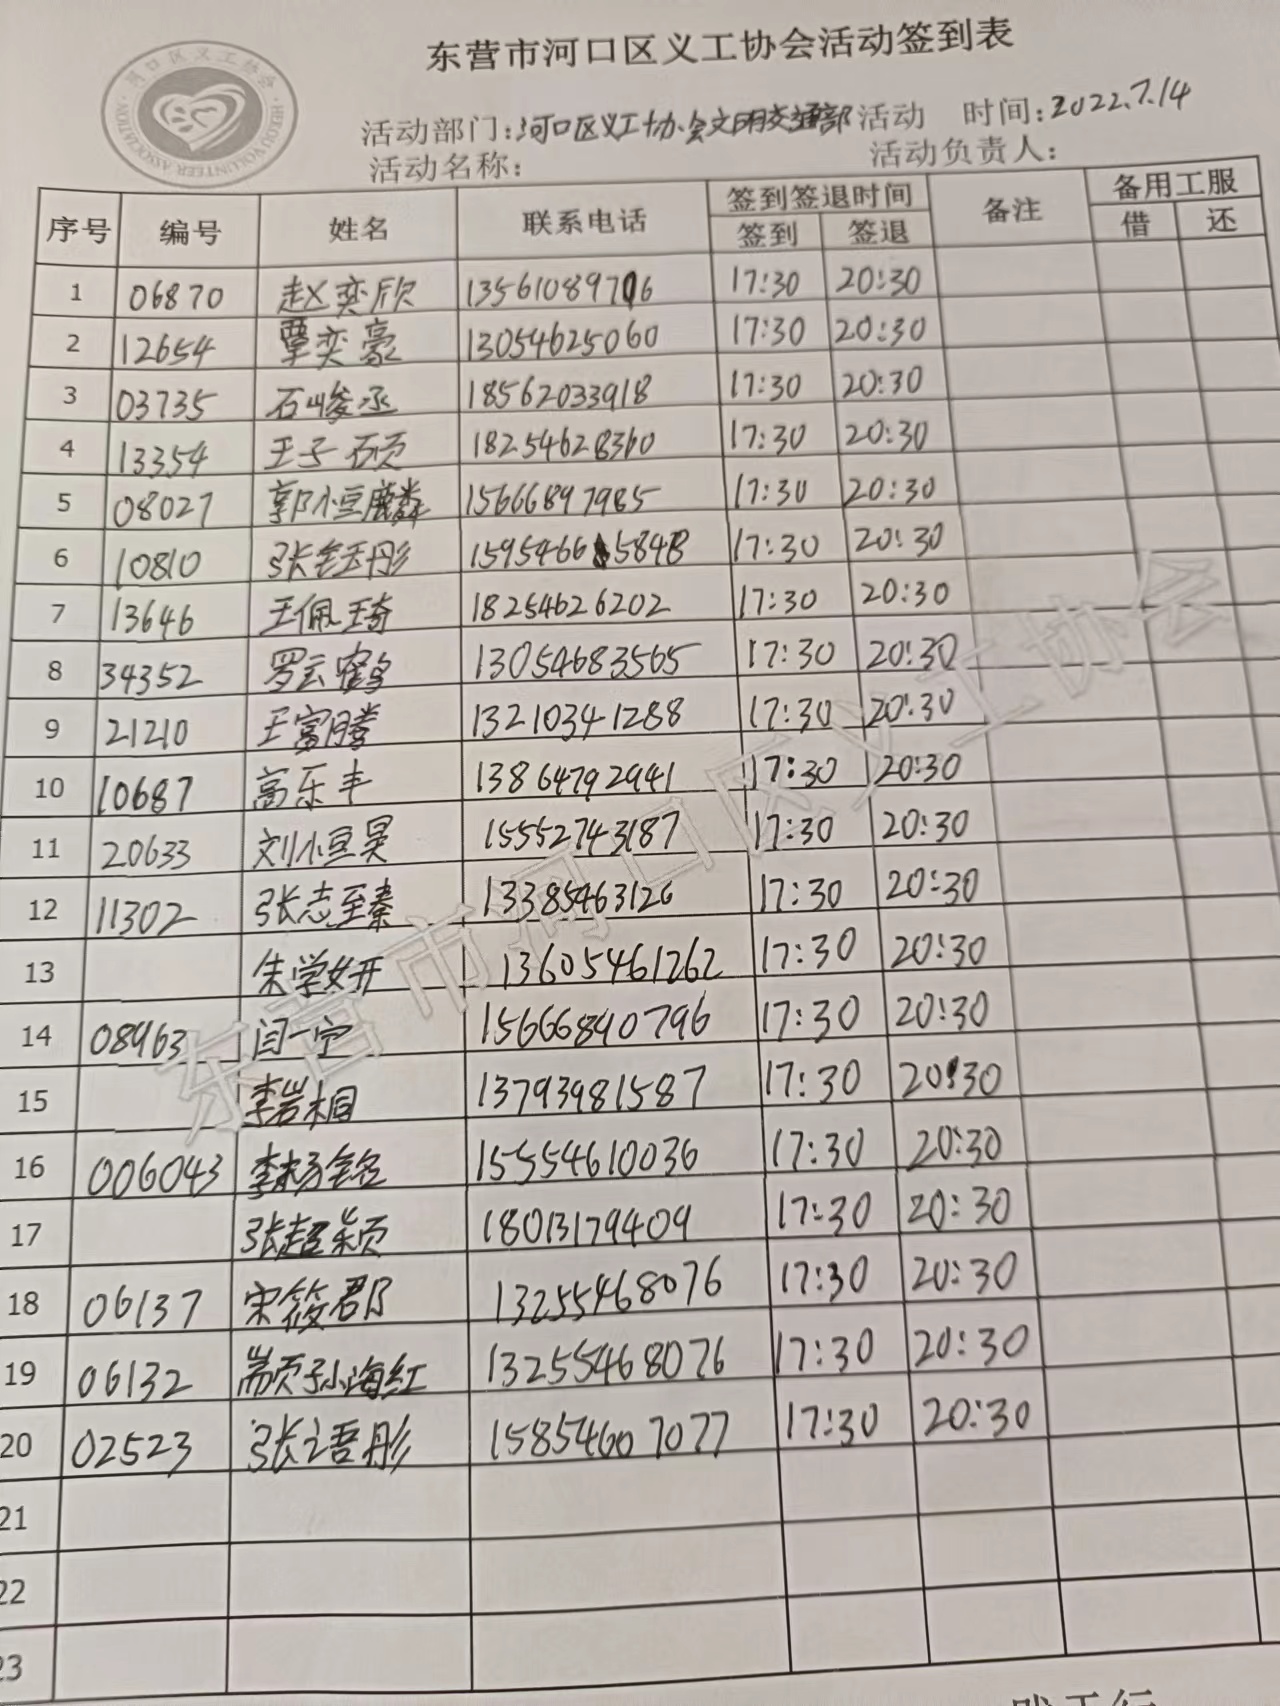 东营市河口区义工协会活动签到表
河口区义工协会
HEKOU VOLUNTEER ASSOCIATION
活动部门:河口区义工协会文明交通部活动 时间:2022.7.14
活动名称: 活动负责人:
序号 编号 姓名 联系电话 签到签退时间 备注 备用工服
签到 签退 借 还
1 06870 赵奕欣 13561089706 17:30 20:30
2 12654 覃奕豪 13054625060 17:30 20:30
3 03735 石峻丞 18562033918 17:30 20:30
4 13354 王子硕 18254628360 17:30 20:30
5 08027 郭小豆麟 15666897985 17:30 20:30
6 10810 张钰彤 15954665848 17:30 20:30
7 13646 王佩琦 18254626202 17:30 20:30
8 34352 罗云鹤 13054683565 17:30 20:30
9 21210 王富腾 13210341288 17:30 20:30
10 10687 高乐丰 13864792941 17:30 20:30
11 20633 刘小豆昊 15552743187 17:30 20:30
12 11302 张志至秦 13385463126 17:30 20:30
13 朱学妍 13605461262 17:30 20:30
14 08963 闫一宁 15666840796 17:30 20:30
15 李岩桐 13793981587 17:30 20:30
16 006043 李杨铭 15554610036 17:30 20:30
17 张超颖 18013179409 17:30 20:30
18 06137 宋筱郡 13255468076 17:30 20:30
19 06132 孙海红 13255468076 17:30 20:30
20 02523 张语彤 15854607077 17:30 20:30
21
22
23
东营市河口区义工协会